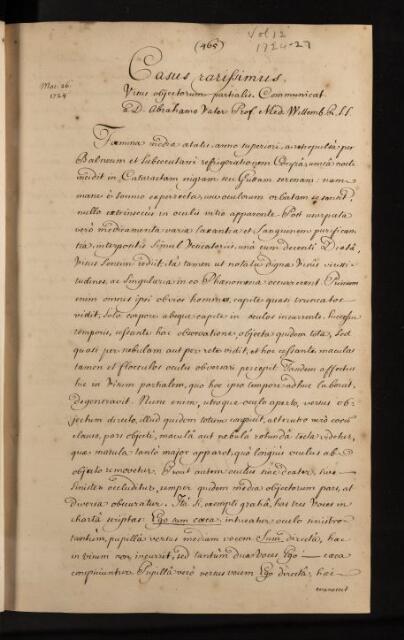 Vol 12
(465)
1724-27
Casus rarissimus
Mar. 26. 1724
Visus objectorum partialis. Communicat.
à D. Abrahamo Vater Prof. Med. Wittemb. R.S.S.
Fæmina mediæ ætatis, anno superiori, per
Balneum et subsecutam refrigerationem una nocte
incidit in Cataractam nigram seu Guttam serenam: nam
mane è somno experrecta, usu oculorum orbatam se sensit,
nullo extrinsecus in oculis vitio apparente. Post usurpata
verò medicamenta varia laxantia et Sanguinem purifican
tia, interpositis simul Vesicatoriis, una cum decenti Diæta,
Visus sensim rediit, ita tamen ut notatu digna Visus vicissi
tudines, ac singularia in eo Phænomena occurrerent. Primum
enim omnes ipsi obvios homines, capite quasi truncatos
vidit, solo corpore absque capite in oculos incurrente. Successu
temporis, cessante hac observatione, objecta quidem tota, sed
quasi per nebulam aut per rete vidit, et hoc cessante maculas
tamen et flocculos oculis obversari percepit. Tandem affectus
hic in Visum partialem, quo hoc ipso tempore adhuc laborat,
degeneravit. Nunc enim, utroque oculo aperto, versus ob-
jectum directo, illud quidem totum conspicit, alterutro verò oculo
clauso, pars objecti, maculâ aut nebulâ rotundâ tecta videtur,
quæ macula tantò major apparet, quò longius oculus ab
objecto removetur. Prout autem oculus sive dexter, sive
sinister occluditur, semper quidem media objectorum pars, at
diversa obscuratur. Ita si, exempli gratiâ, has tres Voces in
chartâ scriptas: Ego sum cæca: intueatur oculo sinistro
tantùm, pupillâ versus mediam vocem Sum directâ, hæc
in visum non incurrit, sed tantùm duæ voces, Ego — cæca
conspiciuntur. Pupillâ verò versus vocem Ego directâ, hæc
evanescit